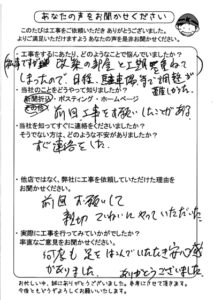 あなたの声をお聞かせください
このたびは工事をご依頼いただきありがとうございました。
よりご満足いただけますようあなたの声を是非お聞かせください。
・工事をするにあたり、どのようなことで悩んでいましたか？
改築の部屋と工期が重ねて
しまったので、日程、駐車場等で調整が
難しかった。
・当社のことをどうやって知りましたか？
新聞折込・ポスティング・ホームページ
その他
前回工事をお願いしたい
・当社を知ってすぐに連絡をくださいましたか？
そうでない方は、どのような不安がありましたか？
すぐ連絡をした。
・他店ではなく、弊社に工事を依頼していただけた理由を
お聞かせください。
前回お願いして
親切でていねいにやっていただいた。
・実際に工事を行ってみていかがでしたか？
率直なご意見をお聞かせください。
何度も足をはこんでいただき安心感
がありました。ありがとうございました
お忙しい中、誠にありがとうございました。参考にさせて頂きます。
今後ともどうぞよろしくお願いいたします。